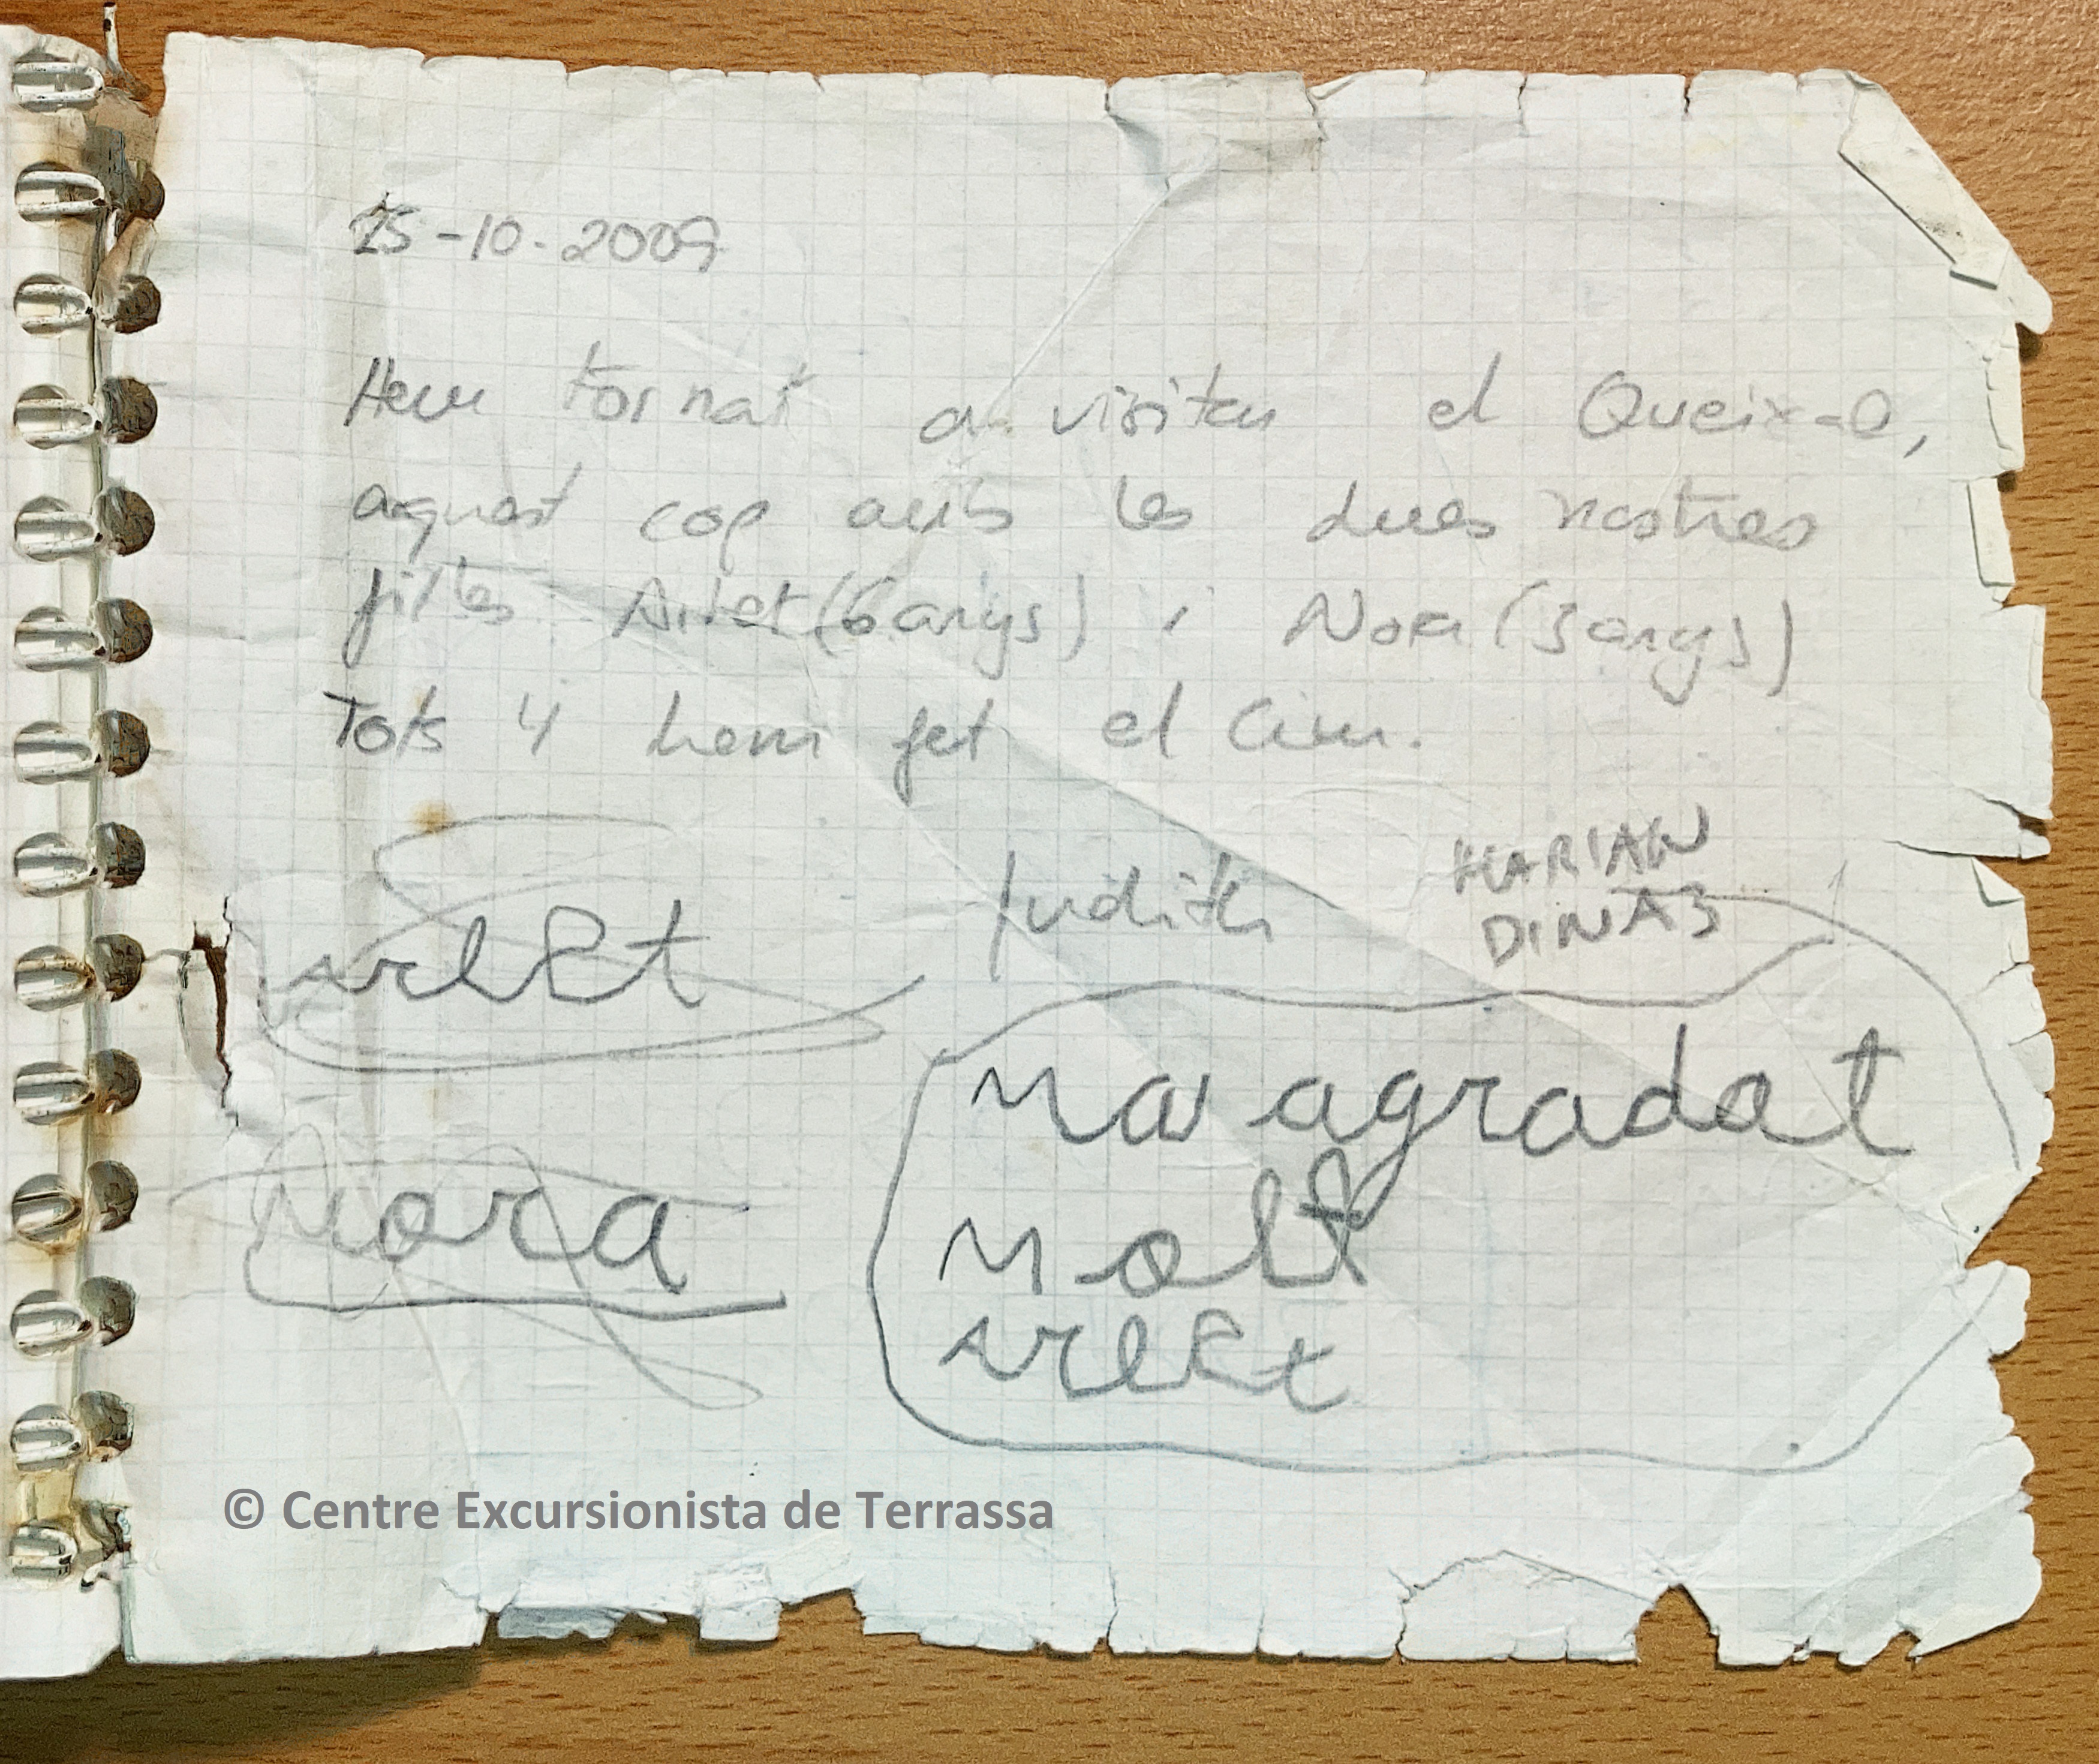 25-10-2009
Hem tornat a visitar el Queixal,
aquest cop amb les dues nostres
filles Arlet (6 anys) i Nora (3 anys)
Tots 4 hem fet el cim.
Judith
MARIAN
DINAS
Arlet
Nora
Ma agradat
Molt
Arlet
© Centre Excursionista de Terrassa